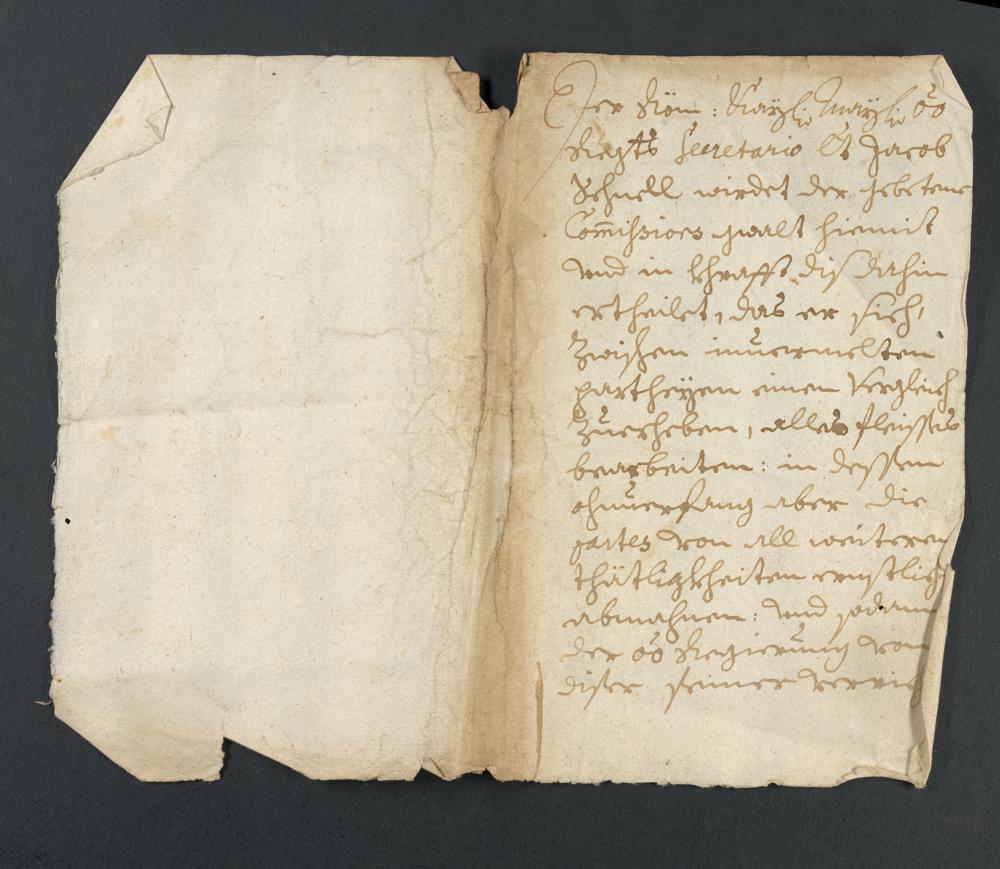 Der Röm: Kaÿl: Maÿl: OÖ
Regts Secretario Jacob
Schnell wirdet der gebetene
Com̄ißiones gwalt hiemit
und in khrafft diß dahin
ertheilet, das er sich,
zwischen inuermelten
partheÿen einen Vergleich
zuerheben, alles fleisses
bearbeiten: in dessen
ohnuerfang aber die
partes von all weiteren
thätligkheiten ernstlich
abmahnen: und sodann
der OÖ Regierung von
diser seiner verrich